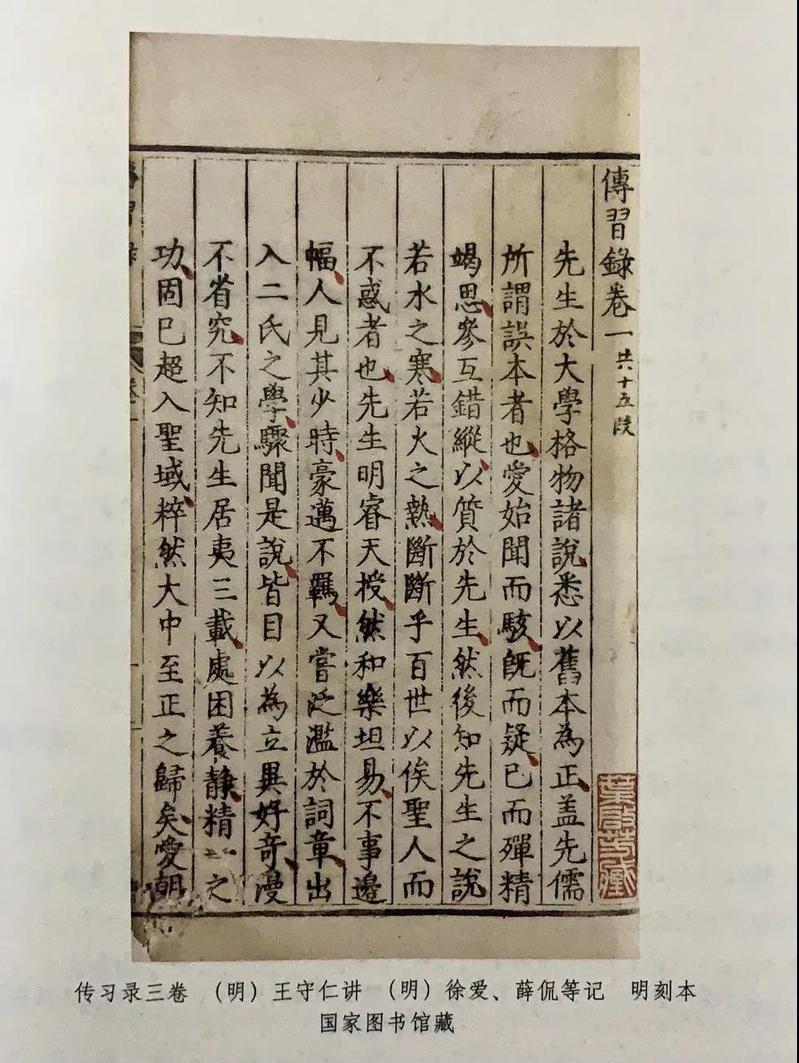 傳習錄卷一 共十五段
先生於大學格物諸說悉以舊本為正盖先儒
所謂誤本者也愛始聞而駭旣而疑已而殫精
竭思參互錯縱以質於先生然後知先生之說
若水之寒若火之熱斷斷乎百世以俟聖人而
不惑者也先生明睿天授然和樂坦易不事邉
幅人見其少時豪邁不羈又嘗泛濫於詞章出
入二氏之學驟聞是說皆目以為立異好奇漫
不省究不知先生居夷三載處困養静精一之
功固已超入聖域粹然大中至正之歸矣愛朝
传习录三卷 (明) 王守仁讲 (明) 徐爱、薛侃等记 明刻本
国家图书馆藏